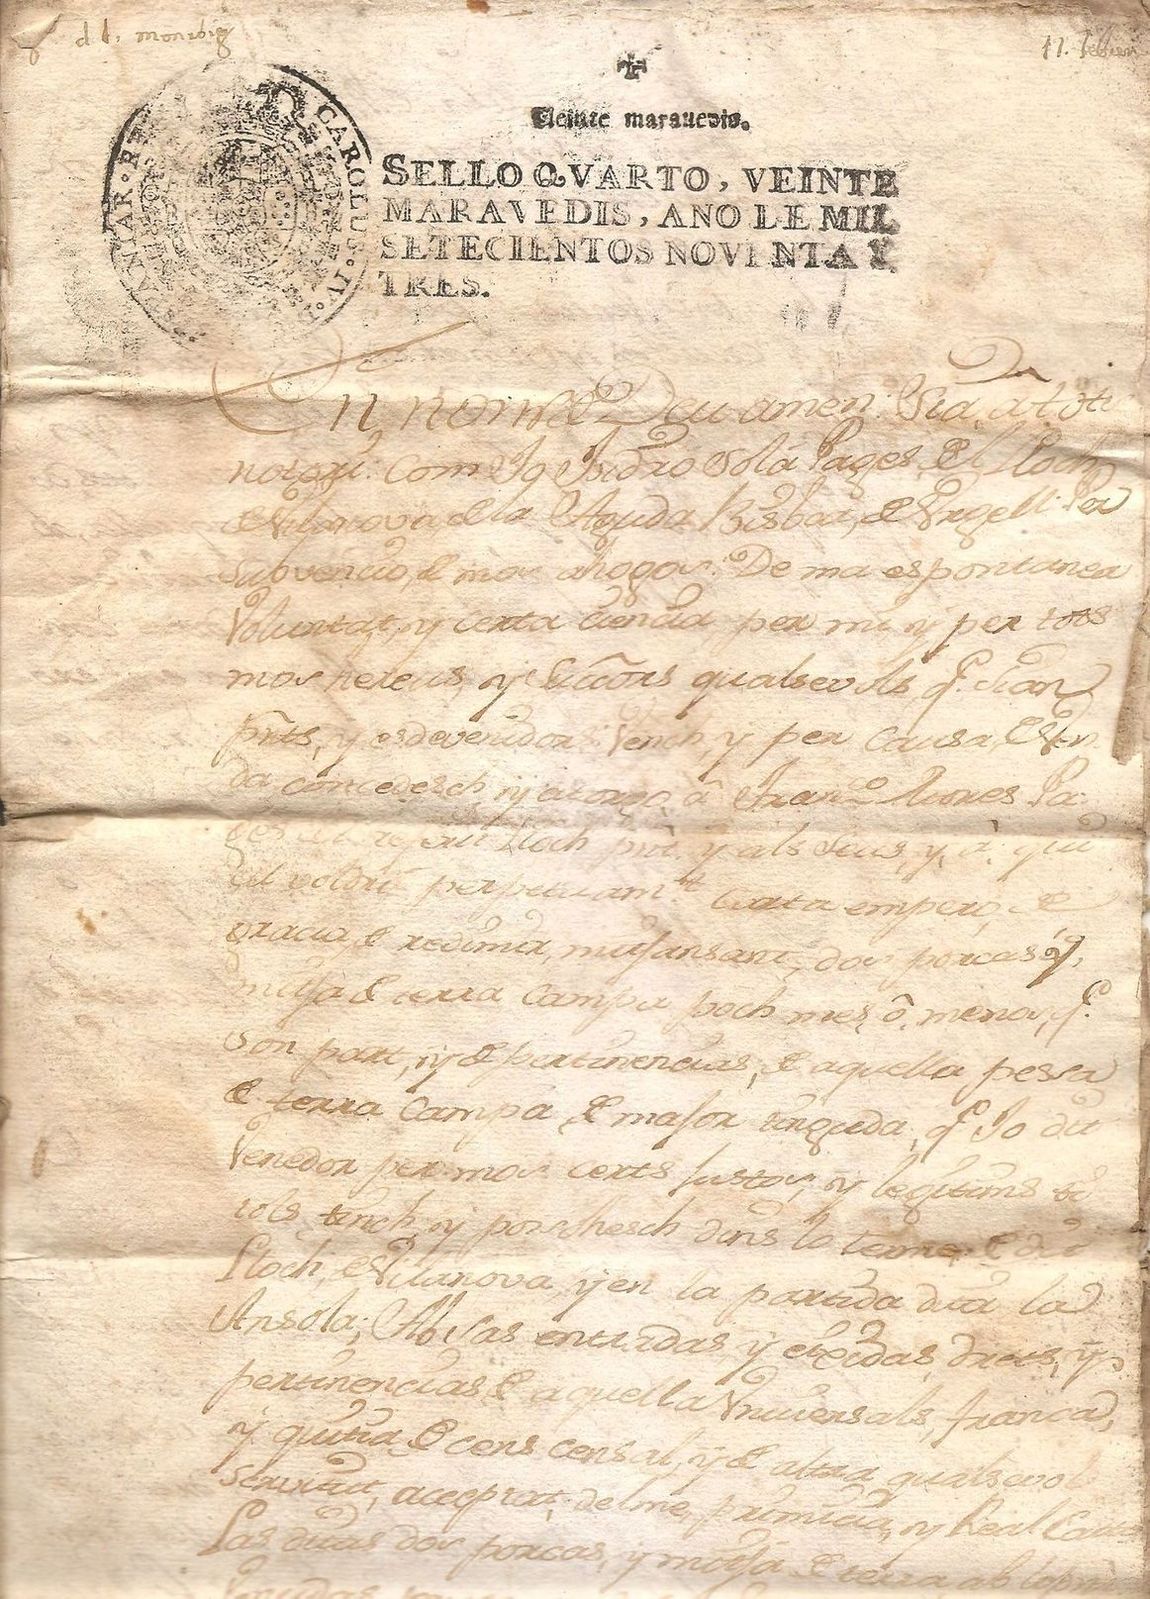 Veinte marauedis.
SELLO QVARTO, VEINTE
MARAVEDIS, AÑO LE MIL
SETECIENTOS NOVENTA Y
TRES.
CAROLUS · IV ·
HISPANIAR · R
En nom de Deu amen: Sia a tots
notori: com Jo Isidro Solá Pages, del Lloch
de Vilanova de la Aguda Bisbat, de Urgell: Per
subvencio, de mos ahogos: De ma espontanea
Voluntat, y certa ciencia, per mi y per tots
mos hereus, y succors qualsevols q.e sian
pnts, y esdevenidors: Vench, y per causa, de Ven-
da concedesch, y atorgo, á Fran.co Pa-
ges del referit Lloch pnt. y als seus, y, á qui
ell voldrá perpetuam.t Carta empero, de
gracia, de redimir, mitjansant, dos porcas y,
mitja de terra campa poch mes, ó, menos, q.e
son part, y de pertinencias, de aquella pessa
de terra campa de major tinguda, q.e Jo dit
Venedor per mos certs Justos, y legitims ti-
tols tinch, y possehesch dins lo terme, de dit
Lloch, de Vilanova, y en la partida dita la
Ansola; Ab sas entradas, y eixidas, drets, y,
pertinencias de aquella Universals, franca,
y quitia, de cens censal, y de altra qualsevol
servitut, aceptat, delme, primicia, y Real
Las ditas dos porcas, y mitja de terra ab